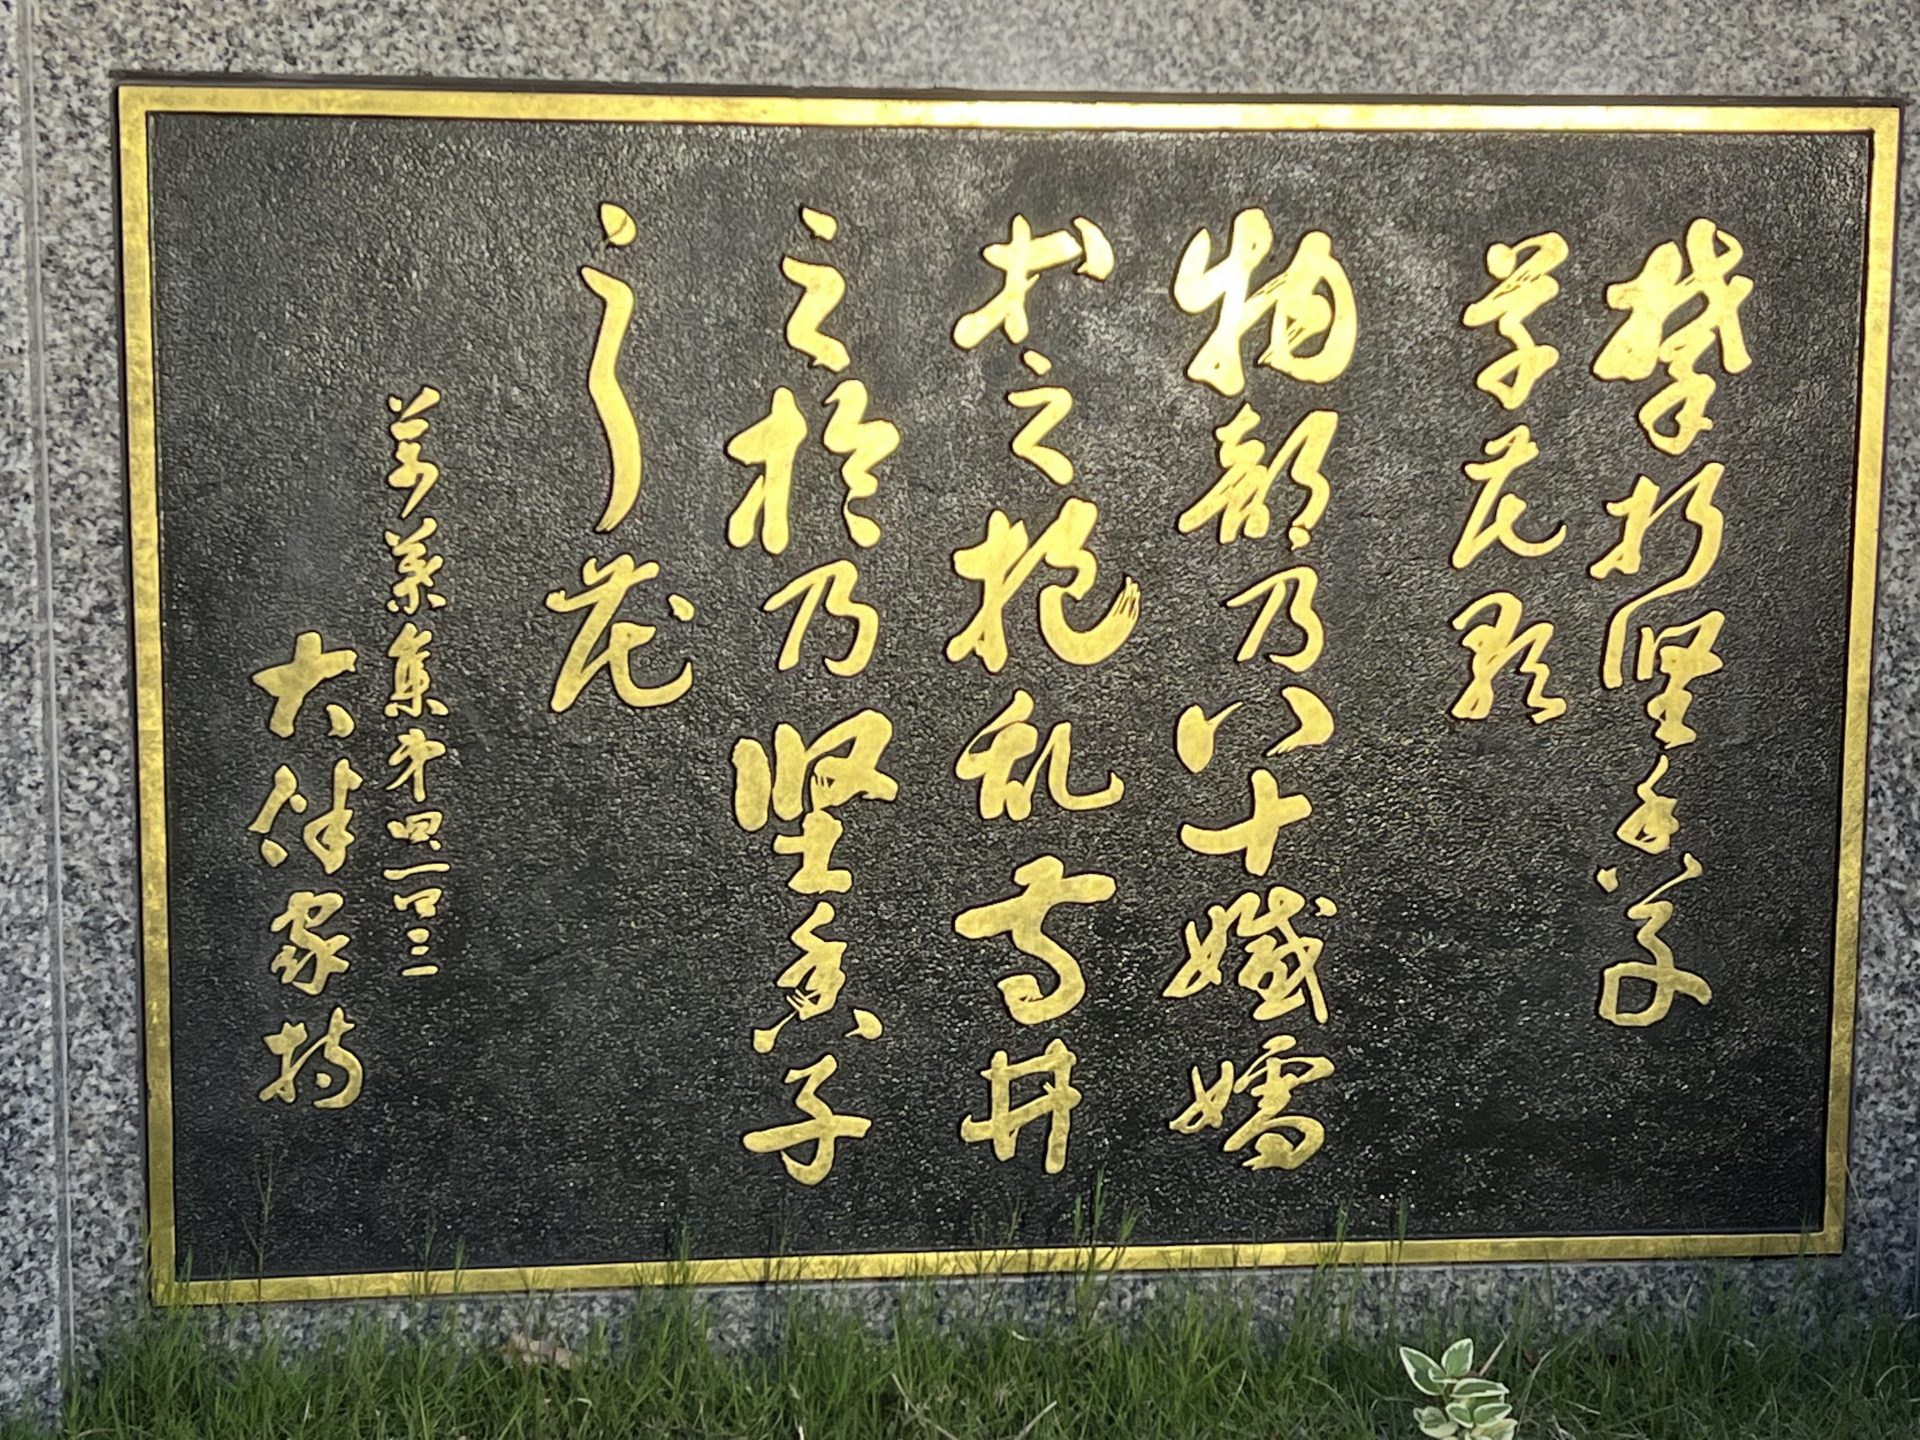 攀折堅香子
草花歌
物部乃八十孅嬬
等之挹乱寺井
之於乃堅香子
之花
萬葉集第四一四三
大伴家持